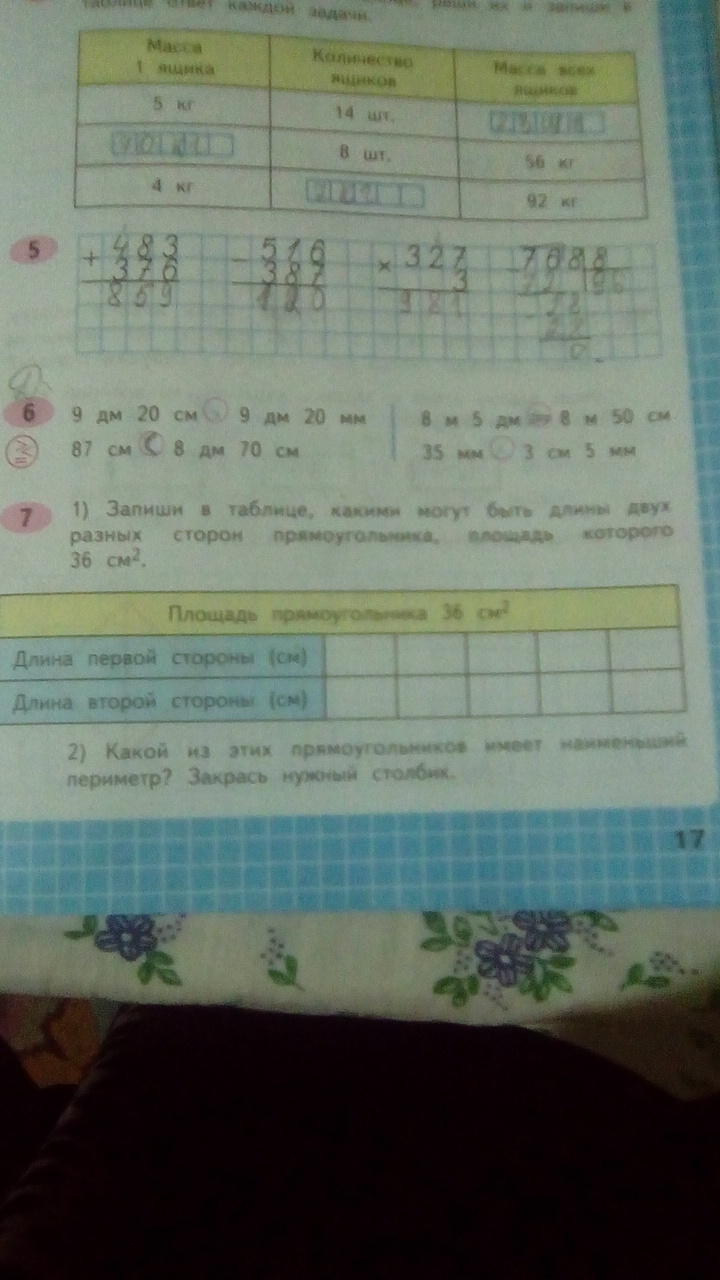 таблице ответ каждой задачи.
Масса 1 ящика
Количество ящиков
Масса всех ящиков
5 кг 14 шт.
8 шт. 56 кг
4 кг 92 кг
5
+ 483 − 516 × 327
376 387 3
859 981
6 9 дм 20 см 9 дм 20 мм 8 м 5 дм 8 м 50 см
87 см < 8 дм 70 см 35 мм 3 см 5 мм
7 1) Запиши в таблице, какими могут быть длины двух
разных сторон прямоугольника, площадь которого
36 см².
Площадь прямоугольника 36 см²
Длина первой стороны (см)
Длина второй стороны (см)
2) Какой из этих прямоугольников имеет наименьший
периметр? Закрась нужный столбик.
17